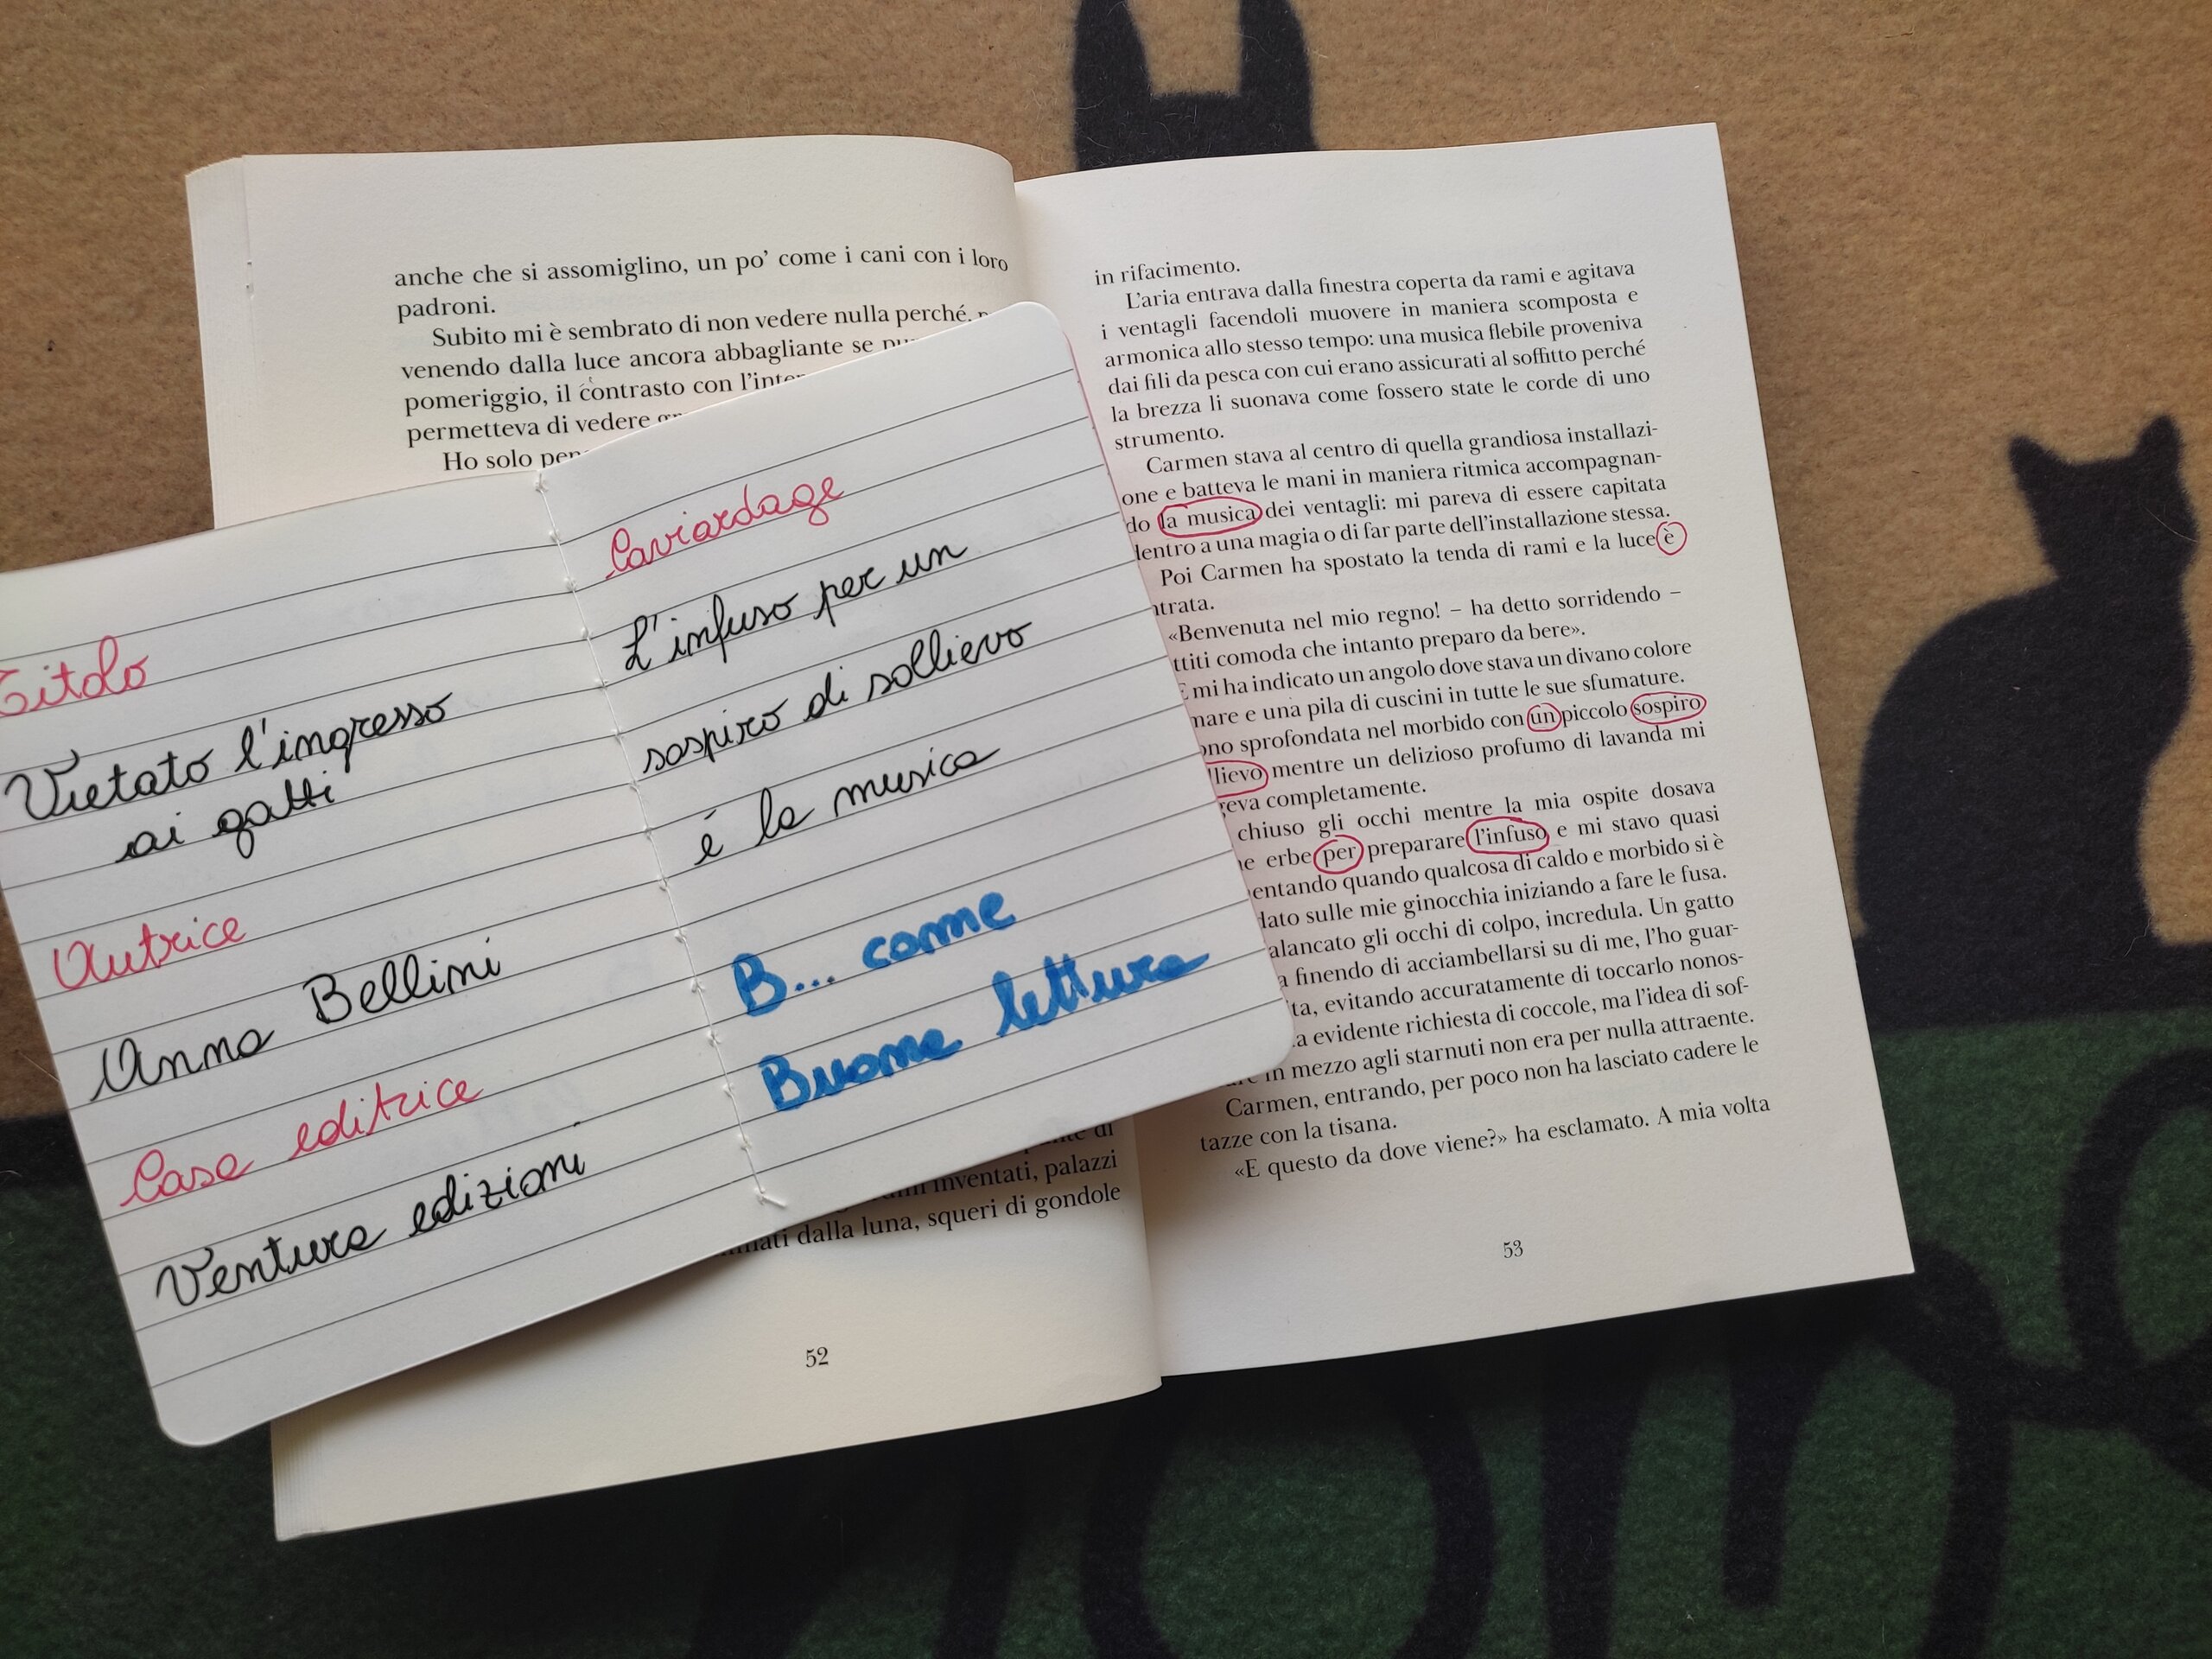 anche che si assomiglino, un po’ come i cani con i loro
padroni.
Subito mi è sembrato di non vedere nulla perché,
venendo dalla luce ancora abbagliante se
pomeriggio, il contrasto con
permetteva di vedere
Ho solo
inventati, palazzi
dalla luna, squeri di gondole
52
Titolo
Vietato l'ingresso
ai gatti
Autrice
Anna Bellini
Casa editrice
Ventura edizioni
Caviardage
L'infuso per un
sospiro di sollievo
é la musica
B... come
Buona lettura
in rifacimento.
L’aria entrava dalla finestra coperta da rami e agitava
i ventagli facendoli muovere in maniera scomposta e
armonica allo stesso tempo: una musica flebile proveniva
dai fili da pesca con cui erano assicurati al soffitto perché
la brezza li suonava come fossero state le corde di uno
strumento.
Carmen stava al centro di quella grandiosa installazi-
one e batteva le mani in maniera ritmica accompagnan-
do la musica dei ventagli: mi pareva di essere capitata
dentro a una magia o di far parte dell’installazione stessa.
Poi Carmen ha spostato la tenda di rami e la luce è
entrata.
«Benvenuta nel mio regno! – ha detto sorridendo –
comoda che intanto preparo da bere».
E mi ha indicato un angolo dove stava un divano colore
mare e una pila di cuscini in tutte le sue sfumature.
sprofondata nel morbido con un piccolo sospiro
mentre un delizioso profumo di lavanda mi
completamente.
chiuso gli occhi mentre la mia ospite dosava
erbe per preparare l’infuso e mi stavo quasi
quando qualcosa di caldo e morbido si è
sulle mie ginocchia iniziando a fare le fusa.
gli occhi di colpo, incredula. Un gatto
finendo di acciambellarsi su di me, l’ho guar-
evitando accuratamente di toccarlo nonos-
evidente richiesta di coccole, ma l’idea di sof-
in mezzo agli starnuti non era per nulla attraente.
Carmen, entrando, per poco non ha lasciato cadere le
tazze con la tisana.
«E questo da dove viene?» ha esclamato. A mia volta
53